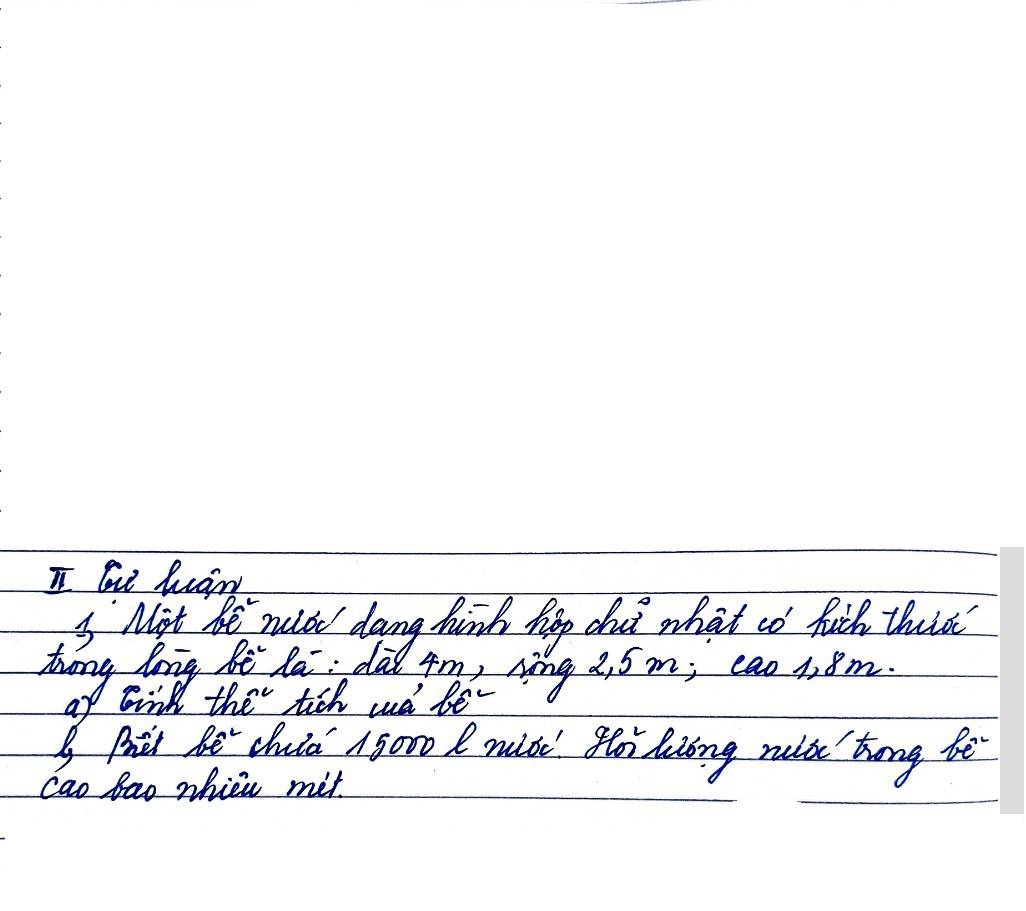 II Tự luận
1, Một bể nước dạng hình hộp chữ nhật có kích thước
trong lòng bể là: dài 4m, rộng 2,5m; cao 1,8m.
a) Tính thể tích của bể
b, Biết bể chứa 15000 l nước. Hỏi lượng nước trong bể
cao bao nhiêu mét.